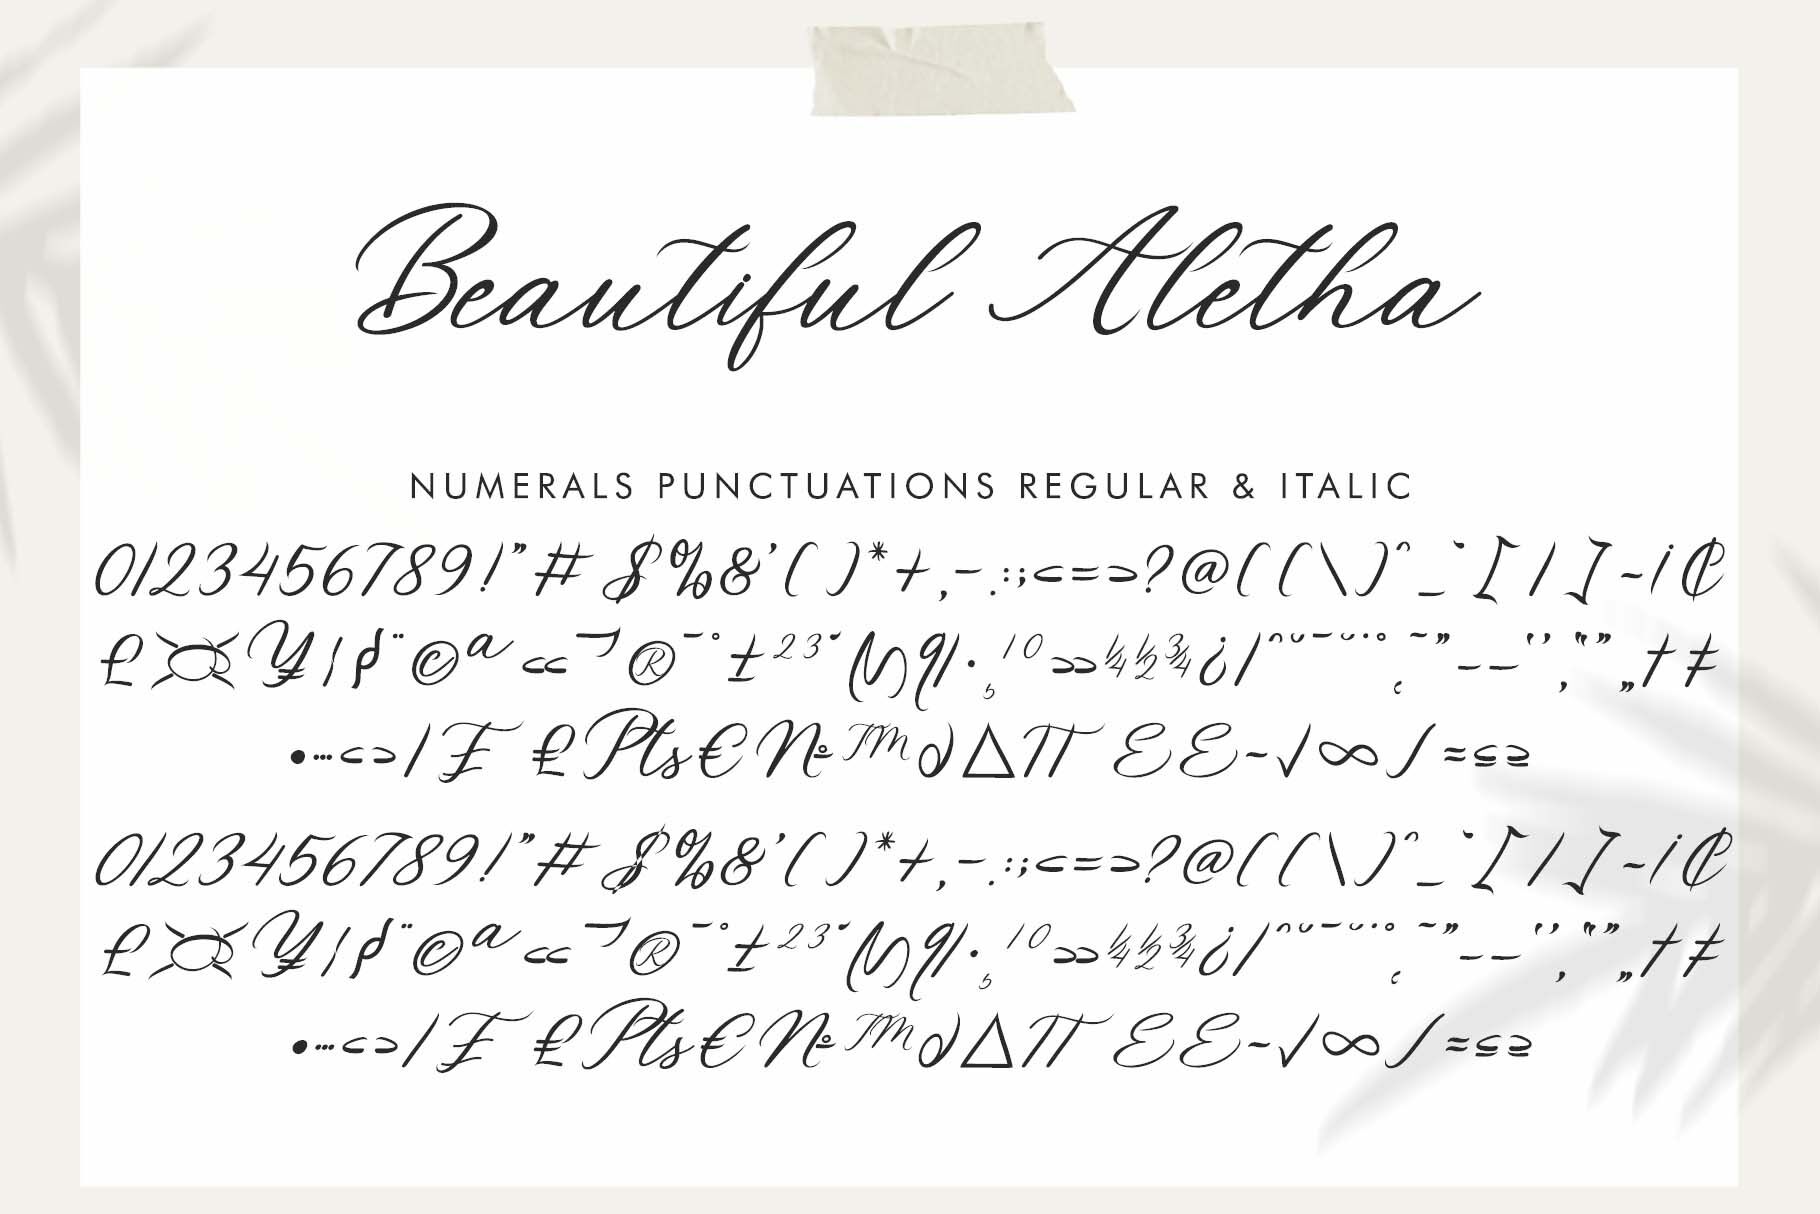 Beautiful Aletha
NUMERALS PUNCTUATIONS REGULAR & ITALIC
0123456789!"# $%&'( )*+,-.:;<=>?@( (\)^_`[/]~¡₵
£¤¥¦§¨©ª«¬®¯°±23´µ¶·¸10»¼½¾¿/ˆˇ˘˙˚˛˜˝–—‘’‚“”„†‡
•…‹›/₣ ₤₧€№™∂∆∏ ƐƐ~√∞∫≈≤≥
0123456789!"# $%&'( )*+,-.:;<=>?@( (\)^_`[/]~¡₵
£¤¥¦§¨©ª«¬®¯°±23´µ¶·¸10»¼½¾¿/ˆˇ˘˙˚˛˜˝–—‘’‚“”„†‡
•…‹›/₣ ₤₧€№™∂∆∏ ƐƐ~√∞∫≈≤≥